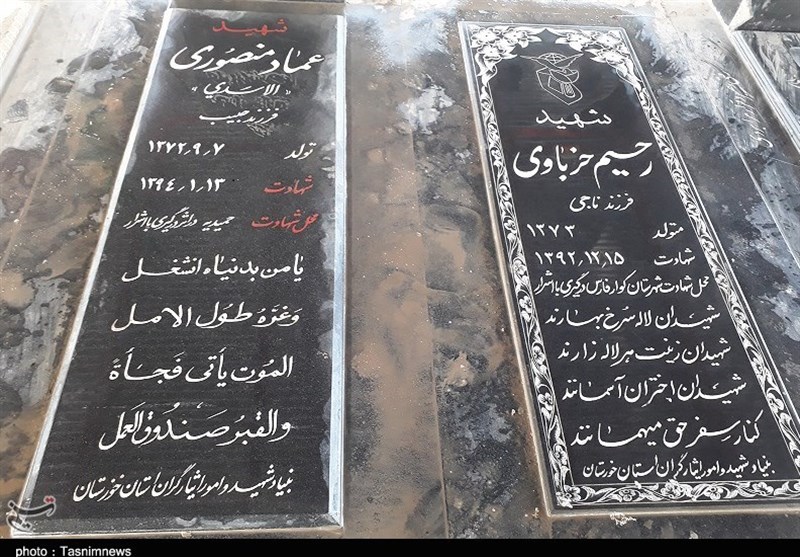 شهید
رحیم حزباوی
فرزند ناجی
متولد ۱۳۷۳
شهادت ۱۳۹۲،۱۲،۱۵
محل شهادت شهرستان کوار فارس درگیری با اشرار
شهیدان لاله سرخ بهارند
شهیدان زینت هر لاله زارند
شهیدان اختران آسمانند
کنار سفره حق میهمانند
بنیاد شهید و امور ایثارگران استان خوزستان
شهید
عماد منصوری
«الاسدي»
فرزند حبیب
تولد ۱۳۷۲،۹،۷
شهادت ۱۳۹۴،۱،۱۳
محل شهادت حمیدیه در اثر درگیری با اشرار
یا من بدنیاه انشغل
وغره طول الامل
الموت یأتی فجأة
والقبر صندوق العمل
بنیاد شهید و امور ایثارگران استان خوزستان
تسنیم
photo : Tasnimnews